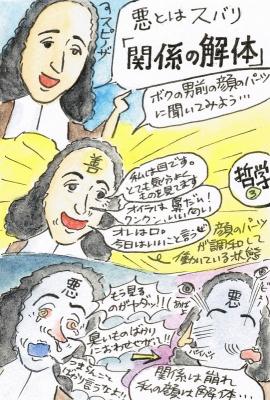 スピノザ
悪とはズバリ
「関係の解体」
ボクの男前の顔のパーツ
に聞いてみよう…
哲学
③
善
私は目です。
とても気分よく
ものを見てます
オイラは鼻だい!
クンクン、いい匂い
オレは口。
今日はいいこと言うぜ
顔のパーツ
が調和して
働いている状態
悪
もう見る
のがヤダッ!!
臭いものばかり
におわせやがって!!
悪
バイバイ
関係は崩れ
私の顔は解体…